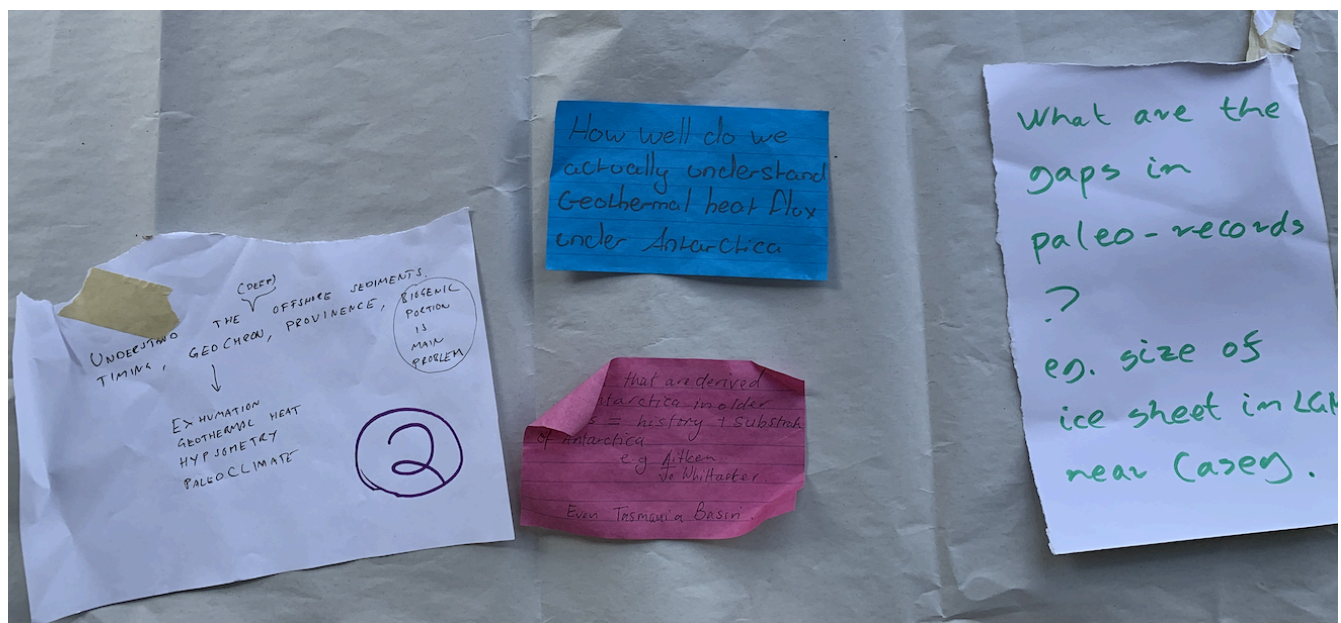 (DEEP)
UNDERSTAND THE OFFSHORE SEDIMENTS.
TIMING, GEOCHRON, PROVINENCE,
BIOGENIC
PORTION
IS
MAIN
PROBLEM
EXHUMATION
GEOTHERMAL HEAT
HYPSOMETRY
PALEOCLIMATE
2
How well do we
actually understand
Geothermal heat flux
under Antarctica
that are derived
in older
= history + substrate
of Antarctica
e.g Aitken
Jo Whittaker
Even Tasmania Basin.
What are the
gaps in
paleo-records
?
eg. size of
ice sheet in LGM
near Casey.